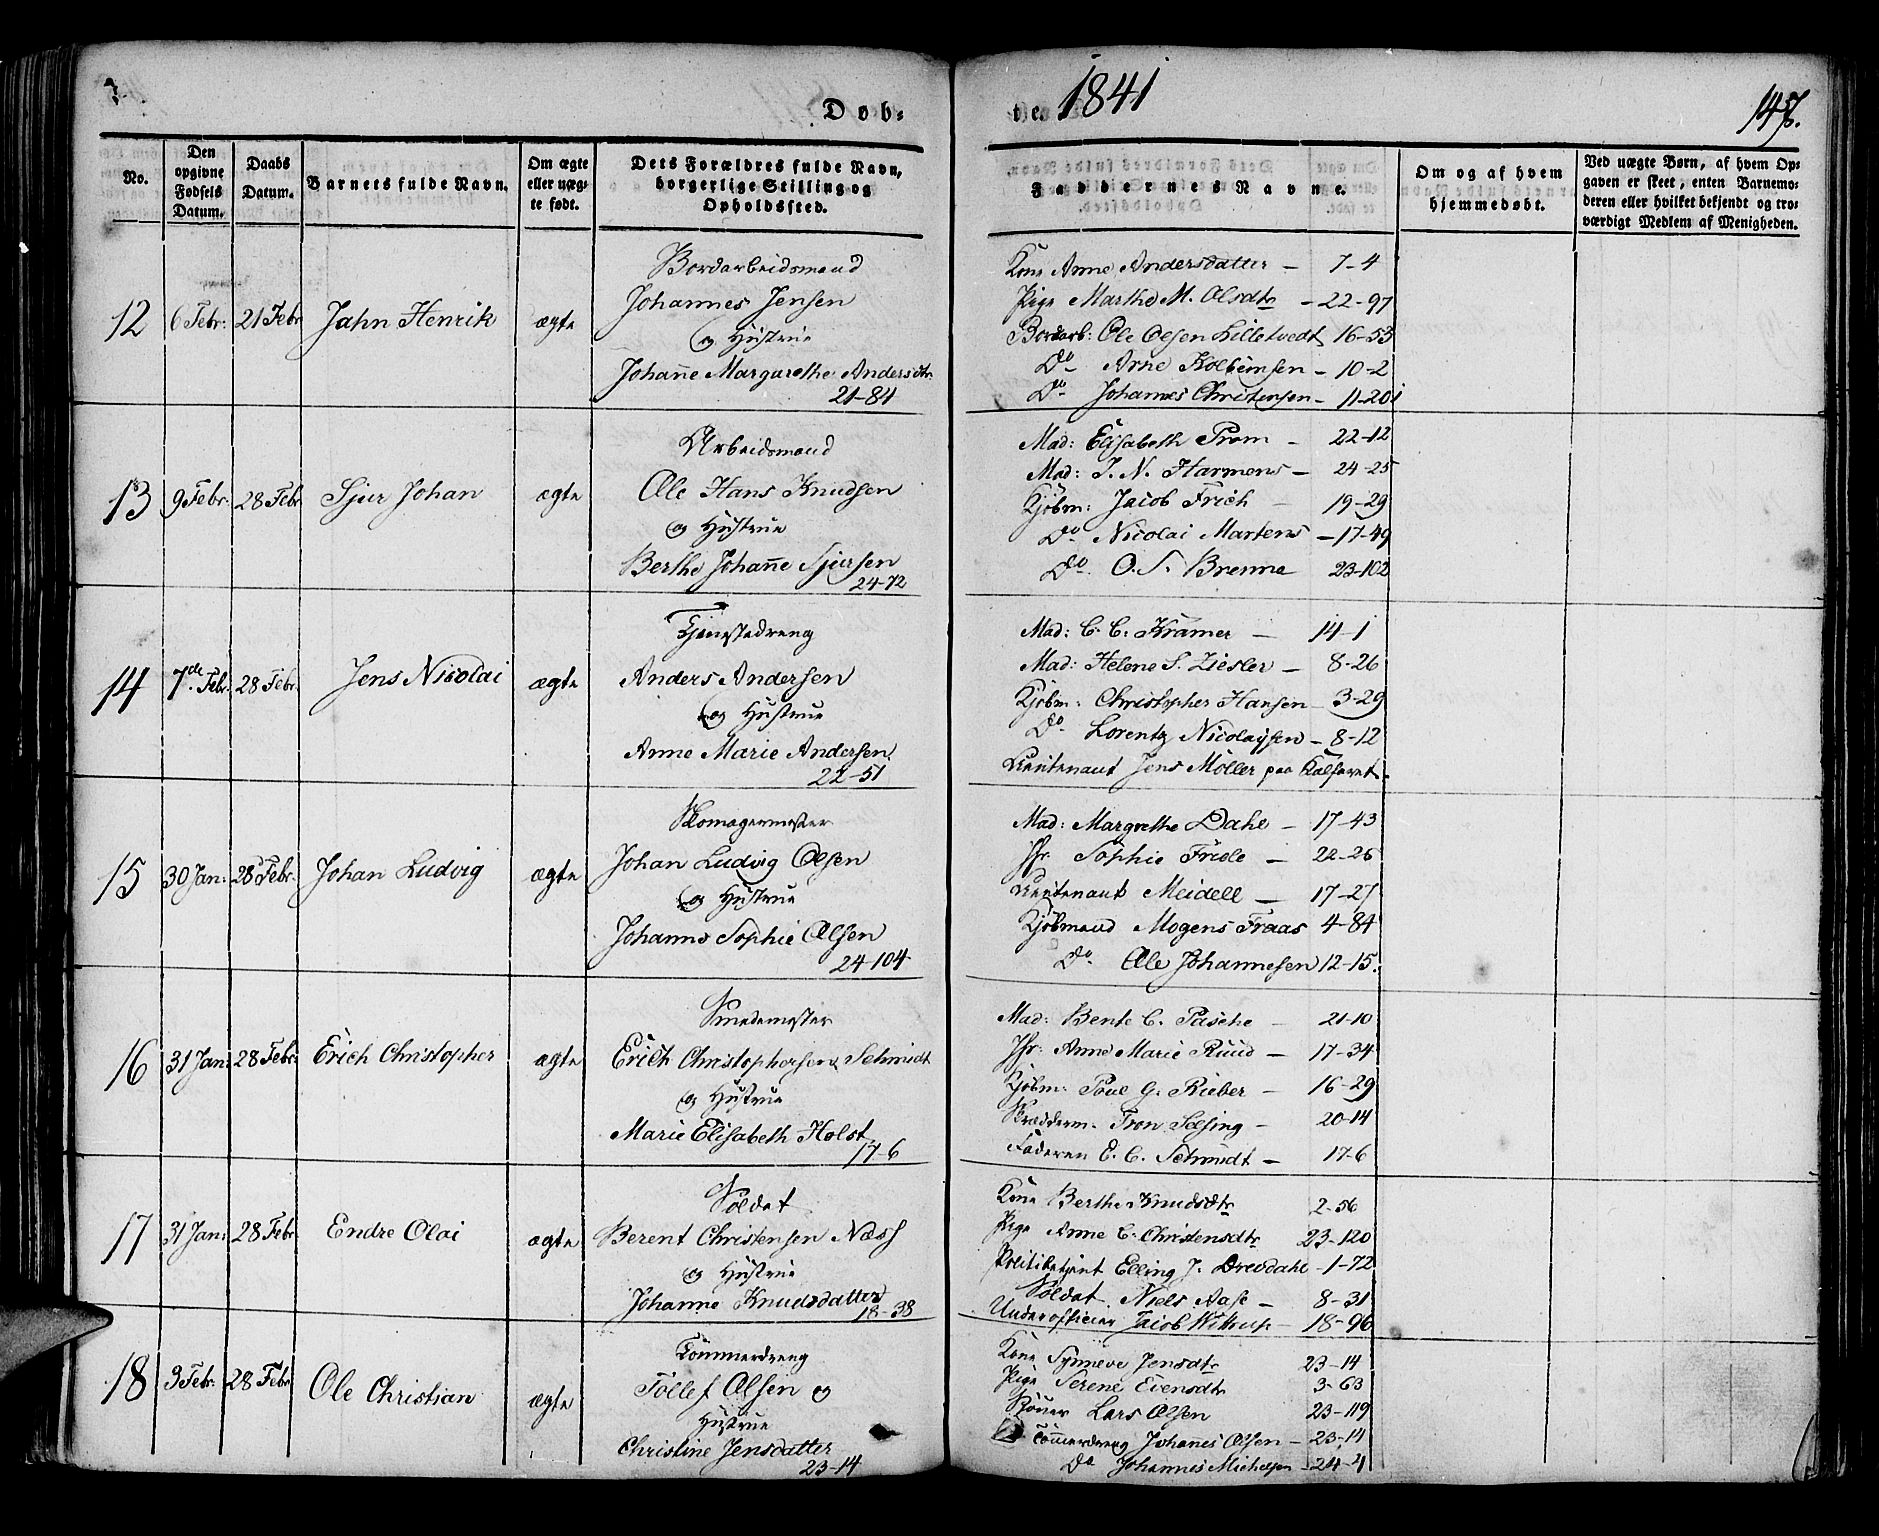 Døb- te. 1841
147.
No.
Den opgivne Fødsels Datum.
Daabs Datum.
Barnets fulde Navn.
Om ægte eller uæg- te født.
Dets Forældres fulde Navn, borgerlige Stilling og Opholdssted.
Faddernes Navne.
Om og af hvem hjemmedøbt.
Ved uægte Børn, af hvem Op- gaven er skeet, enten Barnemo- deren eller hvilket bekjendt og tro- værdigt Medlem af Menigheden.
12 6 Febr: 21 Febr Jahn Henrik ægte
Bordarbeidsmand
Johannes Jensen
og Hustrue
Johanne Margarethe Andersdtr.
21-84
Kone Anne Andersdatter - 7-4
Pige Marthe M. Olsdtr - 22-97
Bordarb: Ole Olsen Lilletvedt 16-53
Do Arne Kolbeinsen - 10-2
Do Johannes Christensen - 11-201
13 9 Febr: 28 Febr Sjur Johan ægte
Arbeidsmand
Ole Hans Knudsen
og Hustrue
Berthe Johanne Sjursen
24-72
Mad: Elisabeth Prom - 22-12
Mad: J. N. Harmens - 24-25
Kjøbm: Jacob Frich - 19-29
Do Nicolai Martens - 17-49
Do O. S. Brenne 23-102
14 7de Febr. 28 Febr. Jens Nicolai ægte
Tjenestedreng
Anders Andersen
og Hustrue
Anne Marie Andersen
22-51
Mad: C. C. Kramer - 14-1
Mad: Helene S. Ziesler - 8-26
Kjøbm: Christopher Hansen - 3-29
Do Lorentz Nicolaysen - 8-12
Lieutenant Jens Møller paa Kalfaret
15 30 Jan: 28 Febr. Johan Ludvig ægte
Skomagermester
Johan Ludvig Olsen
og Hustrue
Johanne Sophie Olsen
24-104
Mad: Margrethe Dahl - 17-43
Jfr. Sophie Friele - 22-26
Lieutenant Meidell - 17-27
Kjøbmand Mogens Fraas 4-84
Do Ole Johannesen 12-15.
16 31 Jan: 28 Febr. Erich Christopher ægte
Smedemester
Erich Christophersen Schmidt
og Hustrue
Marie Elisabeth Holst
17-6
Mad: Bente C. Pasche - 21-10
Jfr: Anne Marie Ruud - 17-34
Kjøbm: Poul G. Rieber - 16-29
Skrædderm. Tron Sælsing - 20-14
Faderen E. C. Schmidt - 17-6
17 31 Jan: 28 Febr Endre Olai ægte
Soldat
Berent Christensen Næss
og Hustrue
Johanne Knudsdatter
18-38
Kone Berthe Knudsdtr 2-56
Pige Anne C. Christensdtr 23-120
Politibetjent Elling J. Drevdahl - 1-72
Soldat Niels Aase - 8-31
Underofficier Jacob Wittrup - 18-96
18 3 Febr: 28 Febr Ole Christian ægte
Tømmerdreng
Tollef Olsen og
Hustrue
Christine Jensdatter
23-14
Kone Synneve Jensdtr 23-14
Pige Serene Evensdtr 3-63
Lars Olsen 23-119
Tømmerdreng Johanes Olsen - 23-14
Do Johannes Michelsen - 24-4